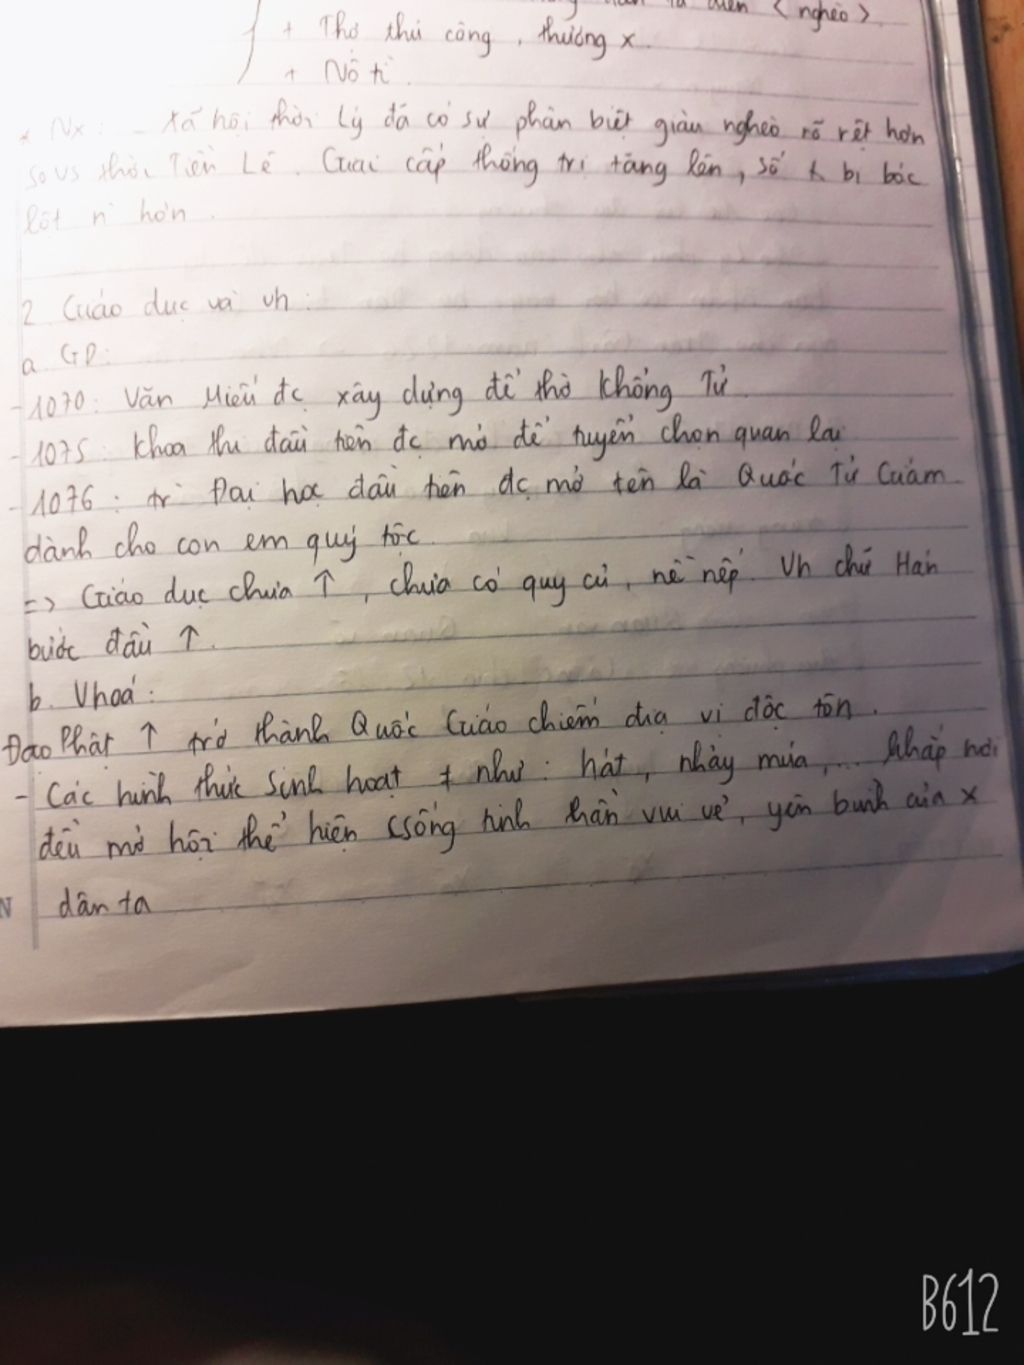 tá điền < nghèo >
+ Thợ thủ công , thương x.
+ Nô tì .
* Nx : - Xã hội thời Lý đã có sự phân biệt giàu nghèo rõ rệt hơn
so vs thời Tiền Lê . Giai cấp thống trị tăng lên , số bị bóc
lột n` hơn .
2 Giáo dục và vh :
a. GD :
- 1070 : Văn Miếu đc xây dựng để thờ Khổng Tử .
- 1075 : Khoa thi đầu tiên đc mở để tuyển chọn quan lại
- 1076 : tr` Đại học đầu tiên đc mở tên là Quốc Tử Giám
dành cho con em quý tộc .
=> Giáo dục chưa ↑ , chưa có quy củ , nề nếp . Vh chữ Hán
bước đầu ↑ .
b. Vhoá :
Đạo Phật ↑ trở thành Quốc Giáo chiếm địa vị độc tôn .
- Các hình thức sinh hoạt ≠ như : hát , nhảy múa , ... khắp nơi
đều mở hội thể hiện csống tinh thần vui vẻ , yên bình của x
dân ta
N
B612